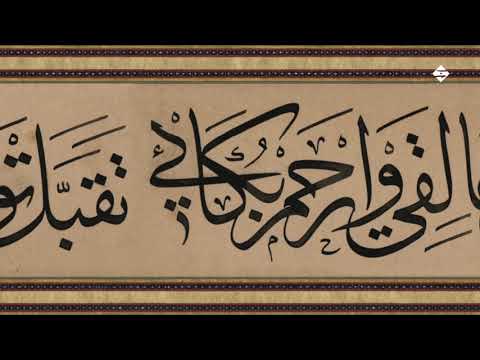 الِقي وارحم بُكائي تقبَّل تو